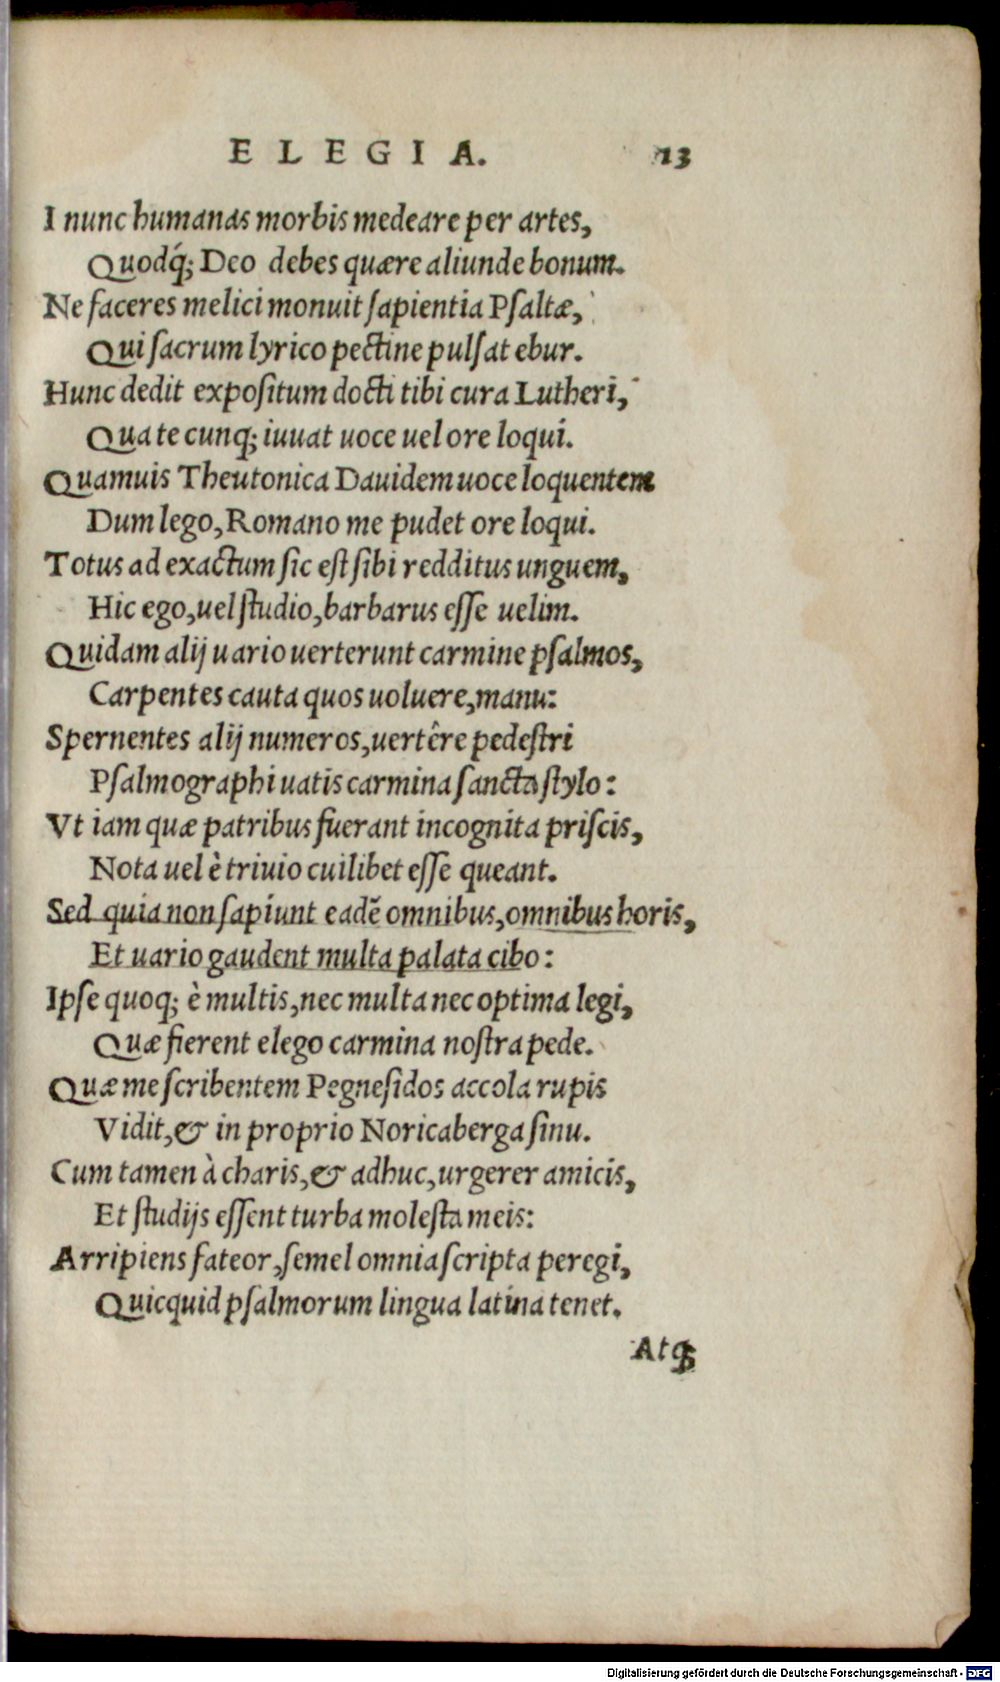 ELEGIA. 13
I nunc humanas morbis medeare per artes,
Quodq́; Deo debes quære aliunde bonum.
Ne faceres melici monuit ſapientia Pſaltæ,
Qui ſacrum lyrico pectine pulſat ebur.
Hunc dedit expoſitum docti tibi cura Lutheri,
Qua te cunq; iuuat uoce uel ore loqui.
Quamuis Theutonica Dauidem uoce loquentem
Dum lego, Romano me pudet ore loqui.
Totus ad exactum ſic eſt ſibi redditus unguem,
Hic ego, uel ſtudio, barbarus eſſe uelim.
Quidam alij uario uerterunt carmine pſalmos,
Carpentes cauta quos uoluere, manu:
Spernentes alij numeros, uertêre pedeſtri
Pſalmographi uatis carmina ſancta ſtylo:
Vt iam quæ patribus fuerant incognita priſcis,
Nota uel è triuio cuilibet eſſe queant.
Sed quia non ſapiunt eadẽ omnibus, omnibus horis,
Et uario gaudent multa palata cibo:
Ipſe quoq; è multis, nec multa nec optima legi,
Quæ fierent elego carmina noſtra pede.
Quæ me ſcribentem Pegneſidos accola rupis
Vidit, & in proprio Noricaberga ſinu.
Cum tamen à charis, & adhuc, urgerer amicis,
Et ſtudijs eſſent turba moleſta meis:
Arripiens fateor, ſemel omnia ſcripta peregi,
Quicquid pſalmorum lingua latina tenet.
Atq;
Digitalisierung gefördert durch die Deutsche Forschungsgemeinschaft - DFG